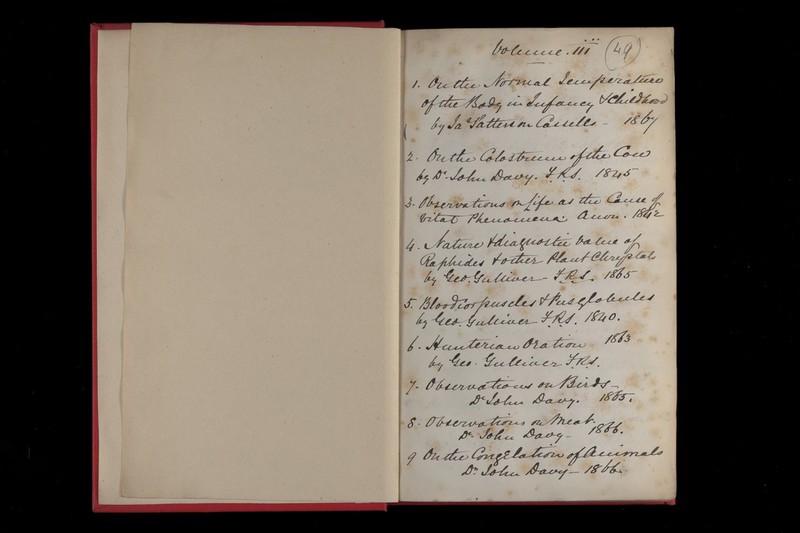 Volume. iii 49
1. On the Normal Temperature
of the Body in Infancy & Childhood
by Jas Patterson Cassells - 1867
2. On the Colostrum of the Cow
by Dr. John Davy. F.R.S. 1845
3. Observations on Life as the Cause of
Vital Phenomena. Anon. 1842
4. Nature & diagnostic Value of
Raphides & other Plant Chrystals
by Geo. Gulliver - F.R.S. 1865
5. Blood Corpuscles & Pus globules
by Geo. Gulliver F.R.S. 1840.
6. Hunterian Oration 1863
by Geo. Gulliver F.R.S.
7. Observations on Birds -
Dr John Davy. 1865.
8. Observations on Meat.
Dr. John Davy - 1866.
9 On the Congelation of Animals
Dr John Davy - 1866.